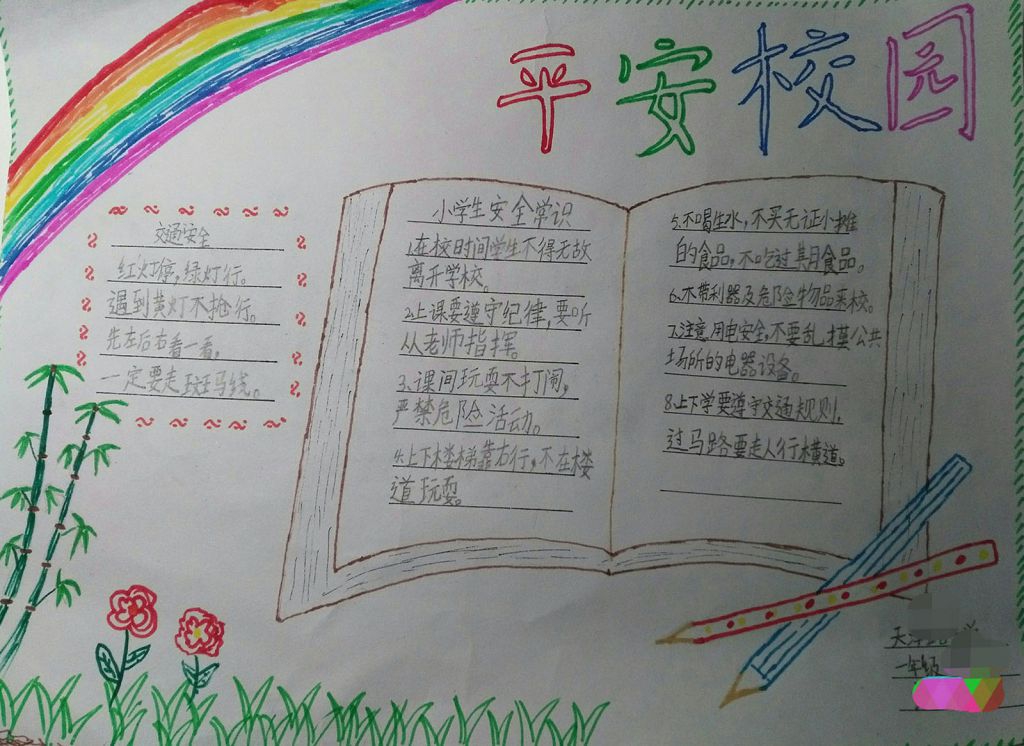 平安校园
交通安全
红灯停,绿灯行。
遇到黄灯不抢行。
先左后右看一看,
一定要走斑马线。
小学生安全常识
1.在校时间学生不得无故
离开学校。
2.上课要遵守纪律,要听
从老师指挥。
3.课间玩耍不打闹,
严禁危险活动。
4.上下楼梯靠右行,不在楼
道玩耍。
5.不喝生水,不买无证小摊
的食品,不吃过期食品。
6.不带利器及危险物品来校。
7.注意用电安全,不要乱摸公共
场所的电器设备。
8.上下学要遵守交通规则,
过马路要走人行横道。
一年级